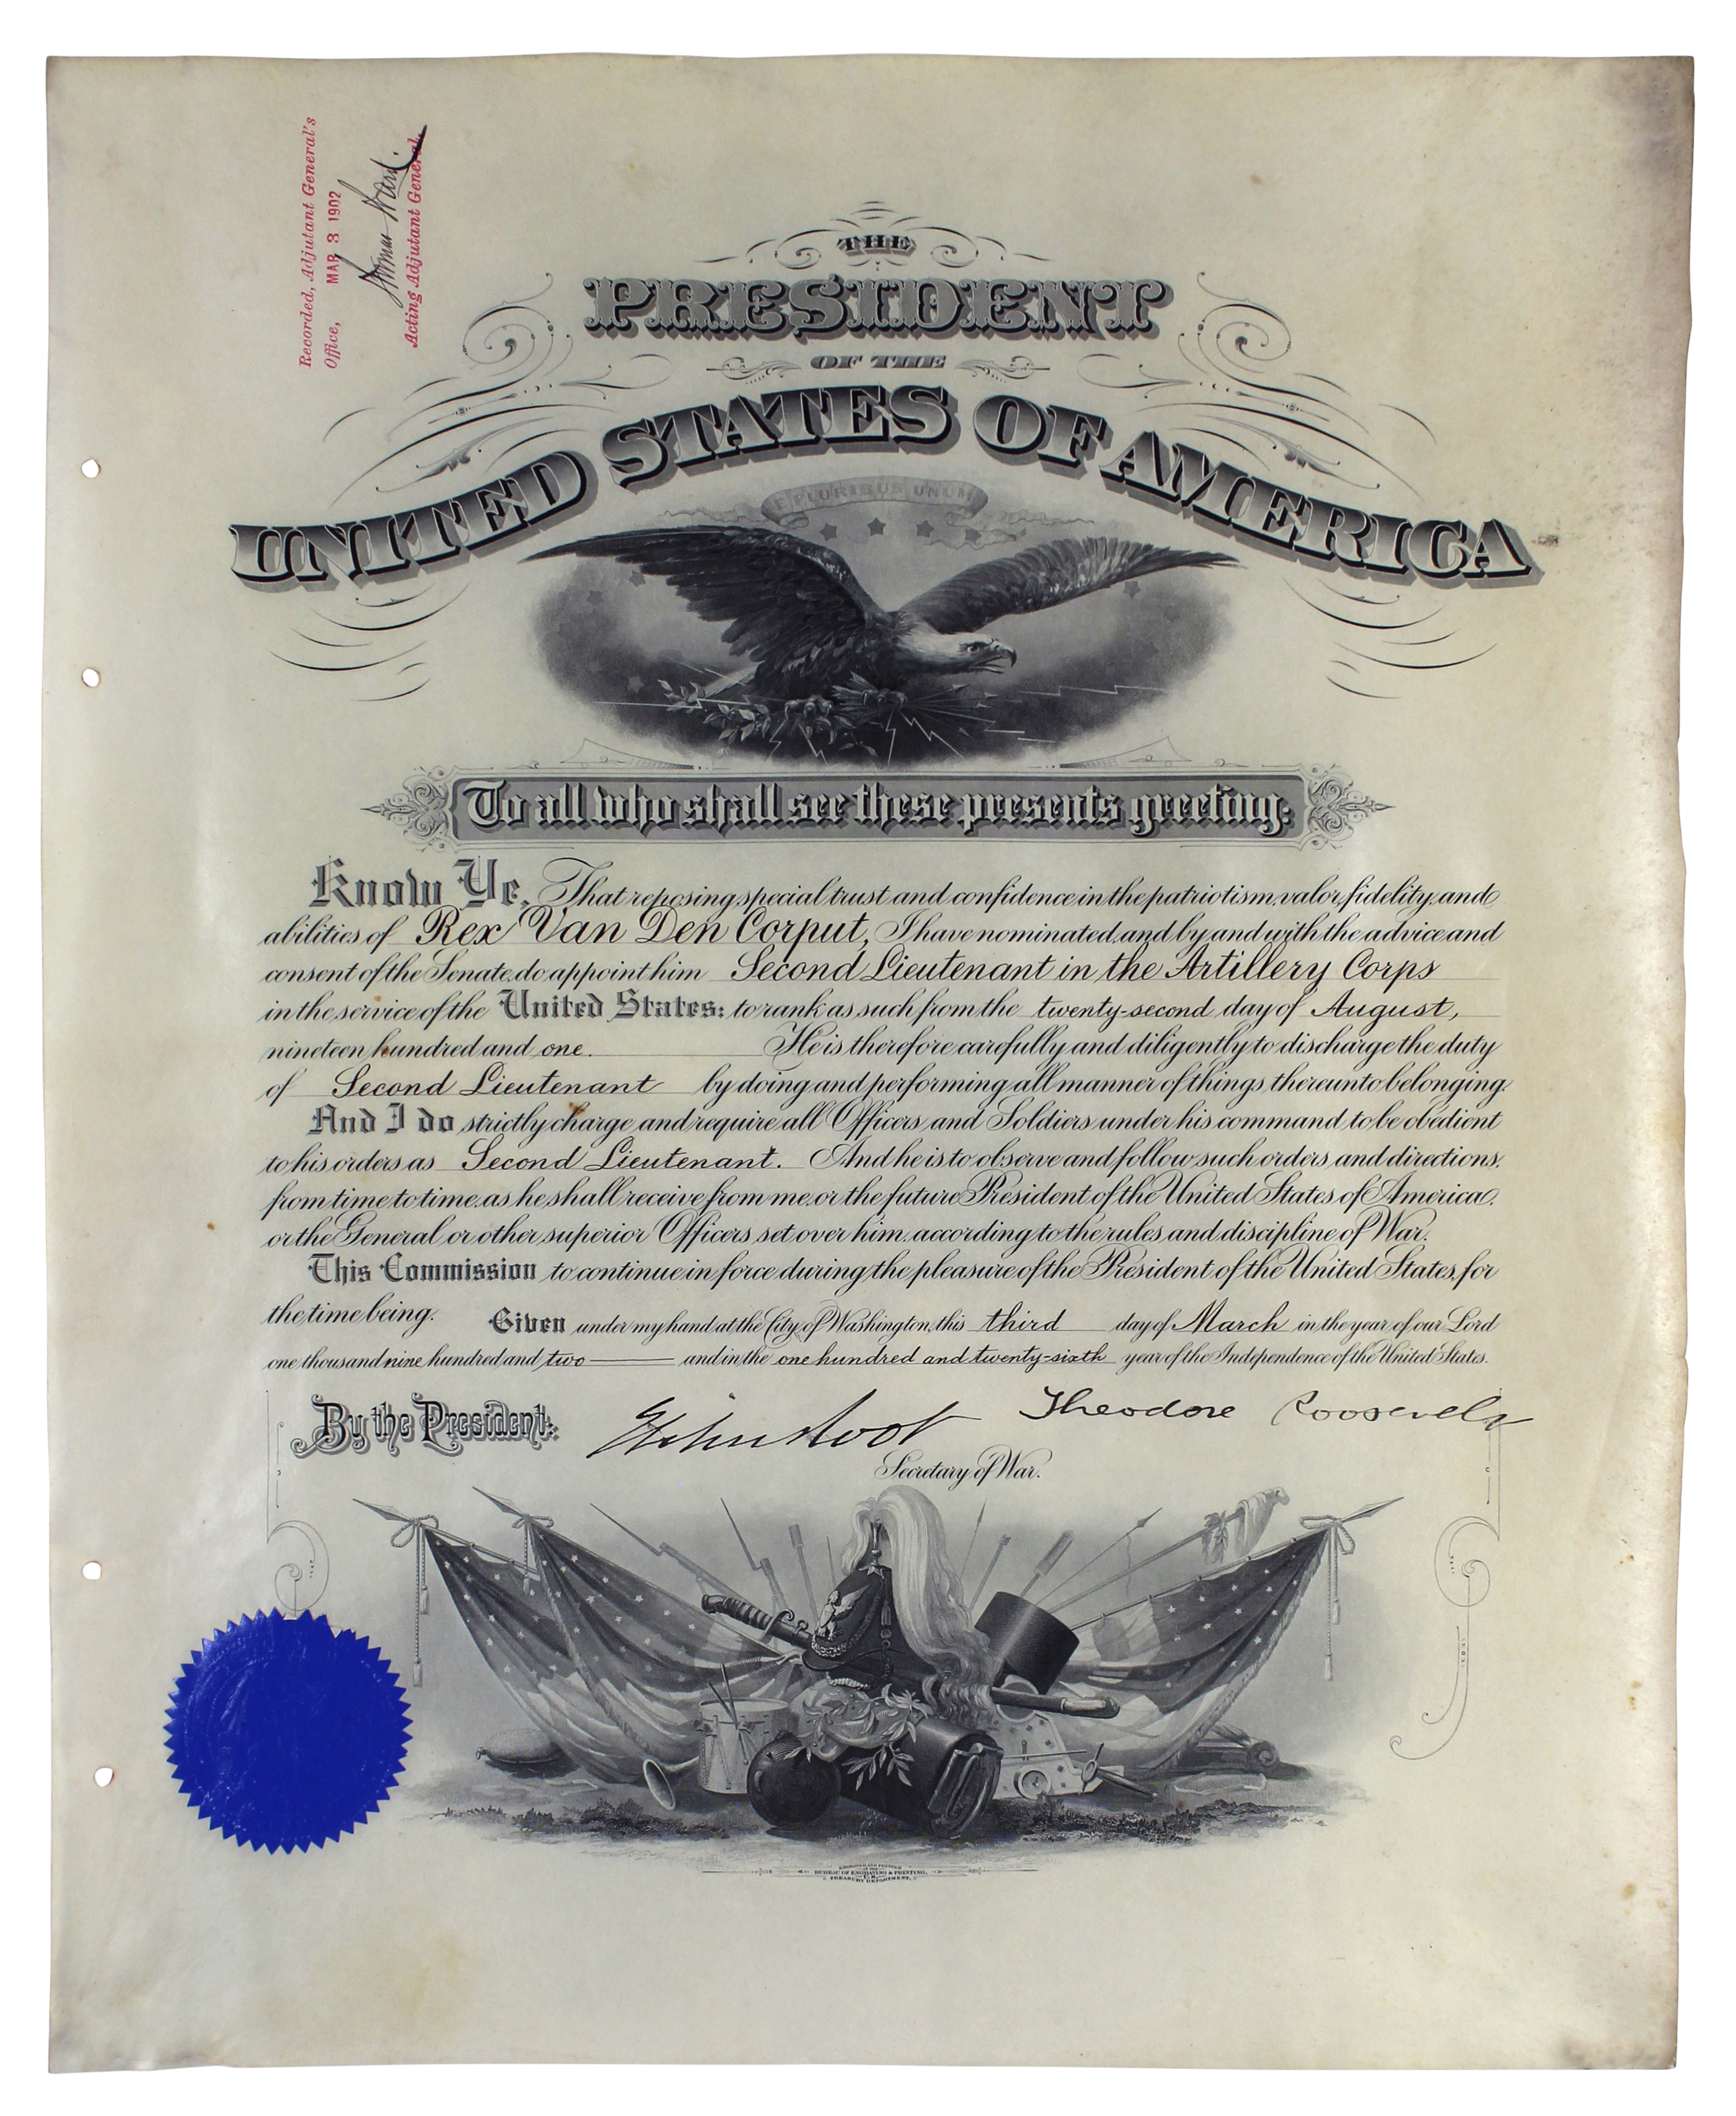 Recorded, Adjutant General's
Office, MAR 3 1902
Thomas Ward.
Acting Adjutant General.
THE
PRESIDENT
OF THE
UNITED STATES OF AMERICA
E PLURIBUS UNUM
To all who shall see these presents greeting:
Know Ye, That reposing special trust and confidence in the patriotism, valor, fidelity, and
abilities of Rex Van Den Corput, I have nominated, and by and with the advice and
consent of the Senate, do appoint him Second Lieutenant in the Artillery Corps
in the service of the United States: to rank as such from the twenty-second day of August,
nineteen hundred and one. He is therefore carefully and diligently to discharge the duty
of Second Lieutenant by doing and performing all manner of things thereunto belonging.
And I do strictly charge and require all Officers and Soldiers under his command to be obedient
to his orders as Second Lieutenant. And he is to observe and follow such orders, and directions,
from time to time, as he shall receive from me, or the future President of the United States of America,
or the General or other superior Officers set over him, according to the rules and discipline of War.
This Commission to continue in force during the pleasure of the President of the United States, for
the time being. Given under my hand at the City of Washington, this third day of March in the year of our Lord
one thousand nine hundred and two and in the one hundred and twenty-sixth year of the Independence of the United States.
By the President: Elihu Root Theodore Roosevelt
Secretary of War.
ENGRAVED AND PRINTED
AT THE
BUREAU OF ENGRAVING & PRINTING,
U.S.
TREASURY DEPARTMENT.